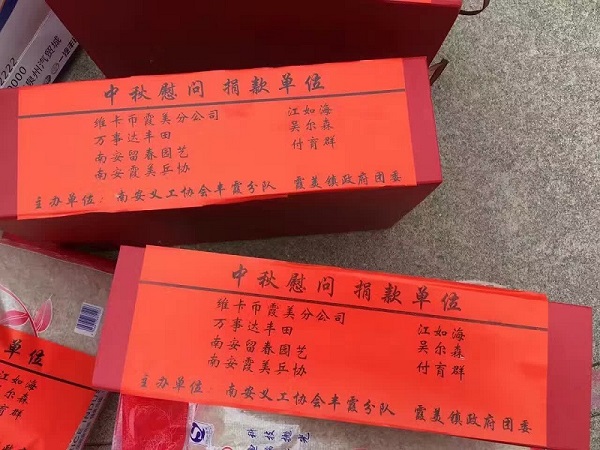 2222
0000
泉州汽贸城
中秋慰问 捐款单位
维卡币霞美分公司 江如海
万事达丰田 吴尔森
南安留春园艺 付育群
南安霞美乒协
主办单位：南安义工协会丰霞分队 霞美镇政府团委
中秋慰问 捐款单位
维卡币霞美分公司 江如海
万事达丰田 吴尔森
南安留春园艺 付育群
南安霞美乒协
主办单位：南安义工协会丰霞分队 霞美镇政府团委
单位
江如海
吴尔森
付育群
府团委